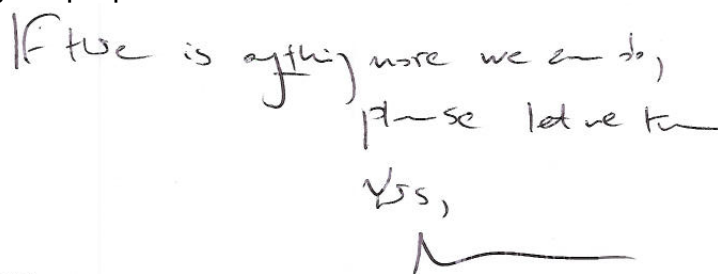 If there is anything more we can do,
please let me know
Yrs,